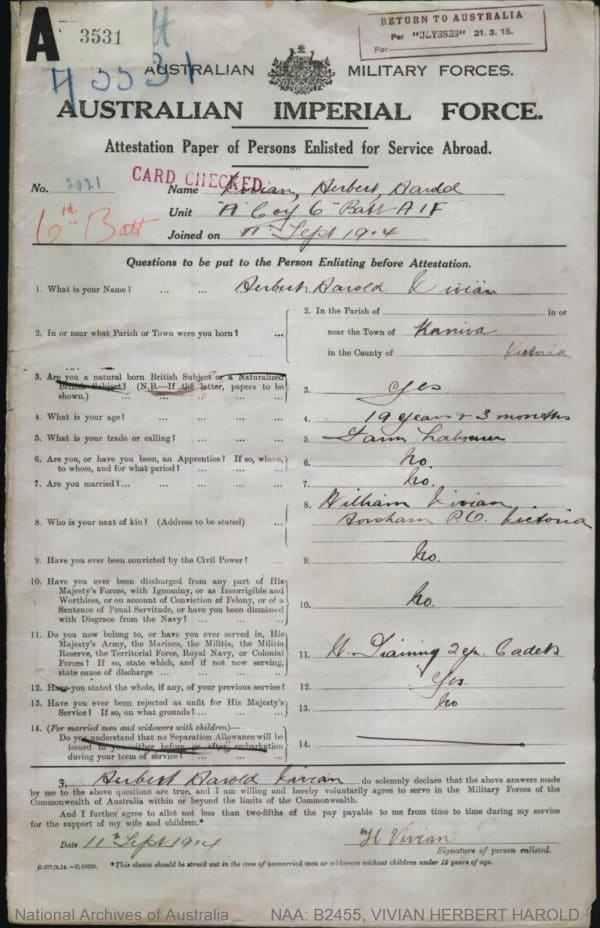 A 3531
RETURN TO AUSTRALIA
Per "ULYSSES" 21.3.15.
For
AUSTRALIAN MILITARY FORCES.
AUSTRALIAN IMPERIAL FORCE.
Attestation Paper of Persons Enlisted for Service Abroad.
CARD CHECKED
No. 2021 Name Vivian, Herbert Harold
6th Batt Unit "A" Coy 6th Batt A I F
Joined on 11th Sept 1914
Questions to be put to the Person Enlisting before Attestation.
1. What is your Name? ... ... ... Herbert Harold Vivian
2. In or near what Parish or Town were you born? ... 2. In the Parish of in or
near the Town of Kaniva
in the County of Victoria
3. Are you a natural born British Subject or a Naturalized
British Subject? (N.B.—If the latter, papers to be
shown.) ... ... ... ... 3. Yes.
4. What is your age? ... ... ... ... 4. 19 years & 3 months
5. What is your trade or calling? ... ... ... 5. Farm Labourer
6. Are you, or have you been, an Apprentice? If so, where,
to whom, and for what period? ... ... ... 6. No.
7. Are you married? ... ... ... ... 7. No.
8. Who is your next of kin? (Address to be stated) ... 8. William Vivian
Horsham P.O. Victoria
9. Have you ever been convicted by the Civil Power? ... 9. No.
10. Have you ever been discharged from any part of His
Majesty's Forces, with Ignominy, or as Incorrigible and
Worthless, or on account of Conviction of Felony, or of a
Sentence of Penal Servitude, or have you been dismissed
with Disgrace from the Navy? ... ... ... 10. No.
11. Do you now belong to, or have you ever served in, His
Majesty's Army, the Marines, the Militia, the Militia
Reserve, the Territorial Force, Royal Navy, or Colonial
Forces? If so, state which, and if not now serving,
state cause of discharge ... ... ... 11. Training 2 yr. Cadets
12. Have you stated the whole, if any, of your previous service? 12. Yes
13. Have you ever been rejected as unfit for His Majesty's
Service? If so, on what grounds? ... ... ... 13. No
14. (For married men and widowers with children)—
Do you understand that no Separation Allowance will be
issued to you either before or after embarkation
during your term of service? ... ... 14.
I, Herbert Harold Vivian do solemnly declare that the above answers made
by me to the above questions are true, and I am willing and hereby voluntarily agree to serve in the Military Forces of the
Commonwealth of Australia within or beyond the limits of the Commonwealth.
And I further agree to allot not less than two-fifths of the pay payable to me from time to time during my service
for the support of my wife and children.*
Date 11th Sept 1914 H Vivian
Signature of person enlisted.
*This clause should be struck out in the case of unmarried men or widowers without children under 18 years of age.
National Archives of Australia NAA: B2455, VIVIAN HERBERT HAROLD